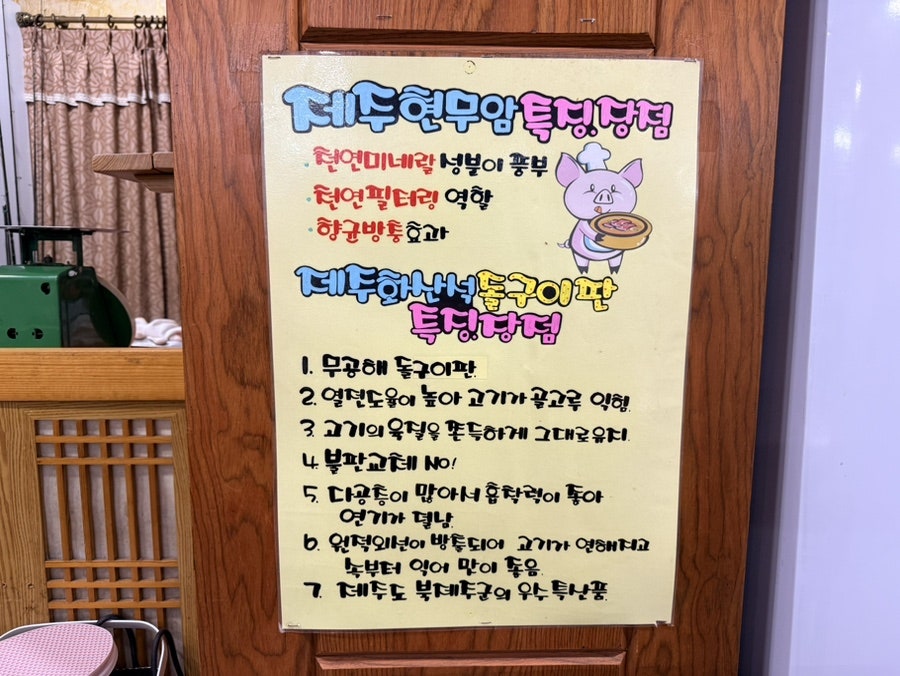 제주현무암 특징.장점
· 천연미네랄 성분이 풍부
· 천연필터링 역할
· 향균방통효과
제주화산석돌구이판
특징.장점
1. 무공해 돌구이판.
2. 열전도율이 높아 고기가 골고루 익힘.
3. 고기의 육질을 쫀득하게 그대로유지.
4. 불판교체 NO!
5. 다공층이 많아서 흡착력이 좋아
연기가 덜남.
6. 원적외선이 방출되어 고기가 연해지고
속부터 익어 맛이 좋음.
7. 제주도 북제주군의 우수특산품.